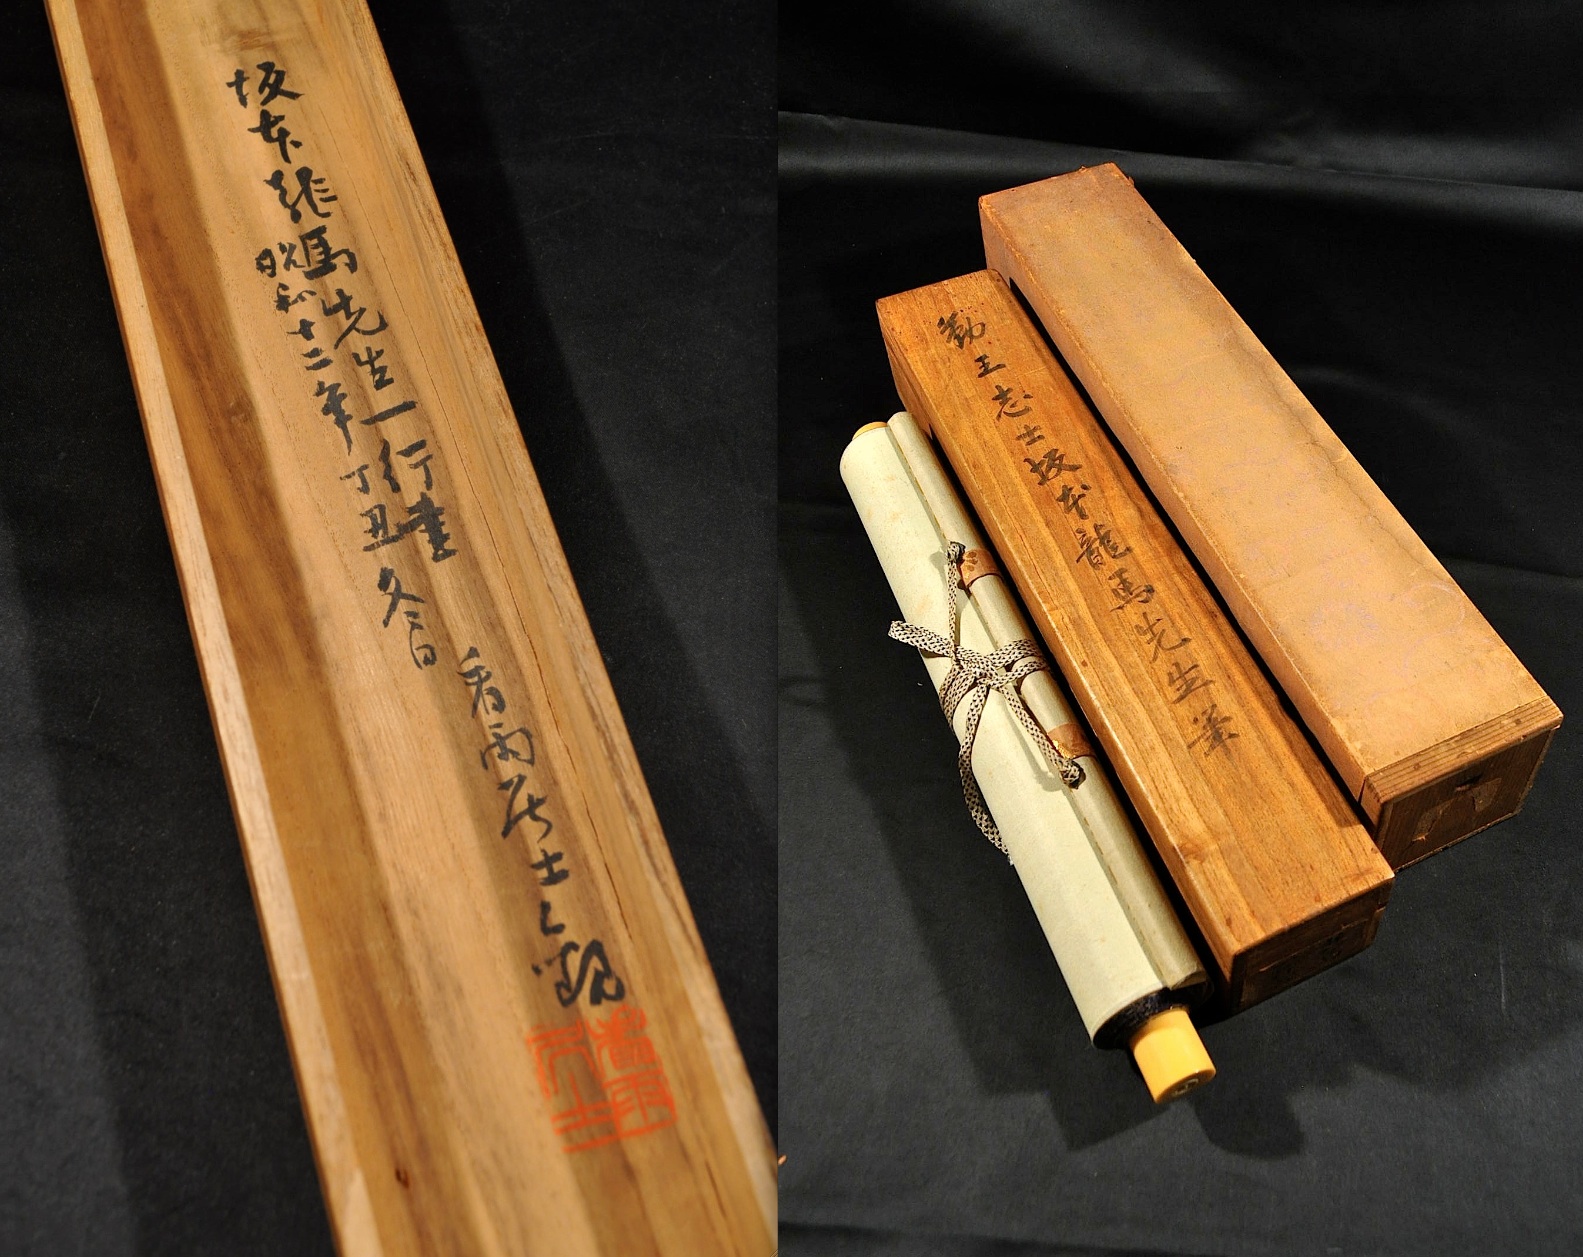 坂本龍馬先生一行書
昭和十二年丁丑冬日
看雨居士
勤王志士坂本龍馬先生筆